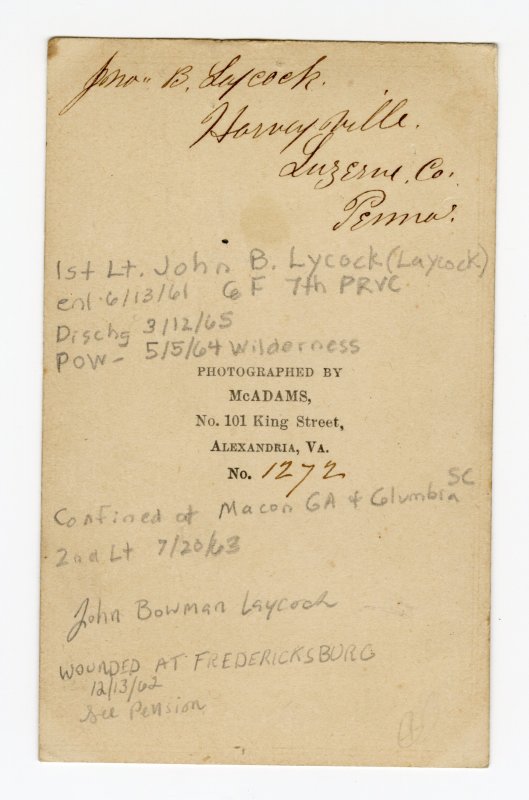 Jno. B. Laycock.
Harveyville.
Luzerne. Co.
Penna.
1st Lt. John B. Lycock (Laycock)
enl. 6/13/61 Co F 7th PRVC
Dischg 3/12/65
POW - 5/5/64 Wilderness
PHOTOGRAPHED BY
McADAMS,
No. 101 King Street,
ALEXANDRIA, VA.
No. 1272
Confined at Macon GA & Columbia SC
2nd Lt 7/20/63
John Bowman Laycock
WOUNDED AT FREDERICKSBURG
12/13/62
See Pension